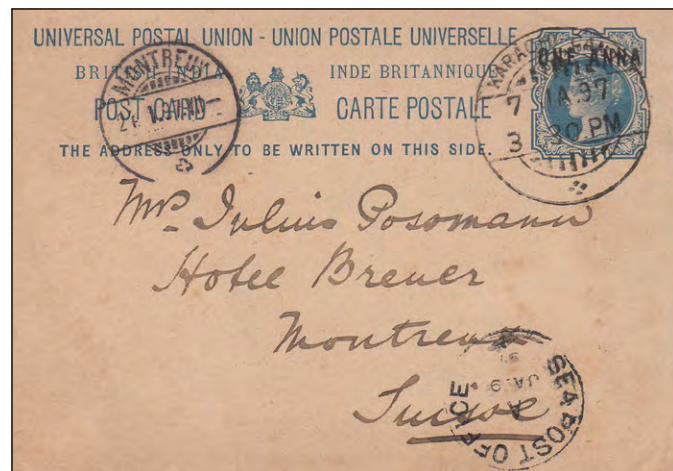 UNIVERSAL POSTAL UNION - UNION POSTALE UNIVERSELLE
BRITISH INDIA INDE BRITANNIQUE
POST CARD CARTE POSTALE
THE ADDRESS ONLY TO BE WRITTEN ON THIS SIDE.
ONE ANNA
MONTREUX
KARACHI
7 JA.97
3 30 PM
Mr. Julius Posomann
Hotel Breuer
Montreux
Suisse
SEA POST OFFICE
A
JA.9